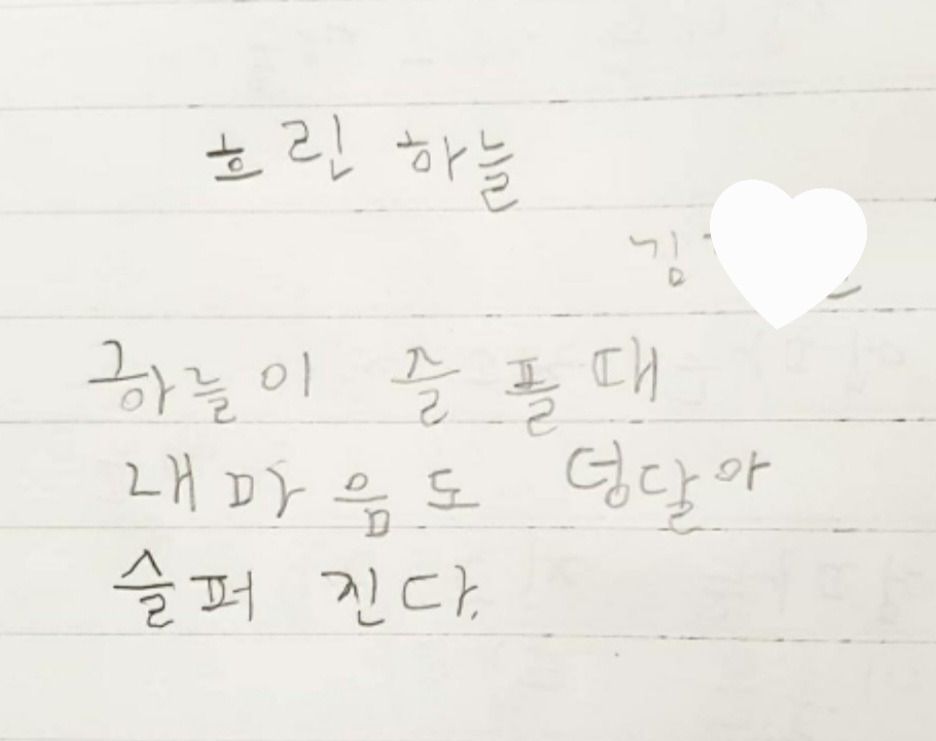 흐린 하늘
김
하늘이 즐플때
내마음도 덩달아
슬퍼 진다.